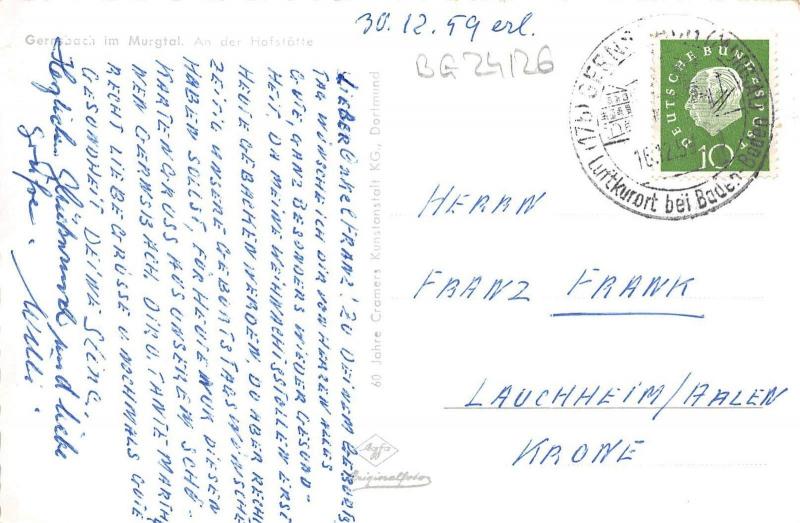 Gernsbach im Murgtal. An der Hofstätte
30.12.59 erl.
BG 24126
LIEBER ONKEL FRANZ! ZU DEINEM GEBURTS-
TAG WÜNSCHE ICH DIR VON HERZEN ALLES
GUTE, GANZ BESONDERS WIEDER GESUND-
HEIT. DA MEINE WEIHNACHTSSTOLLEN ERST
HEUTE GEBACHEN WERDEN, DU ABER RECHT-
ZEITIG UNSERE GEBURTSTAGSWÜNSCHE
HABEN SOLLST, FÜR HEUTE NUR DIESEN
KARTENGRUSS AUS UNSEREM SCHÖ-
NEN GERNSBACH. DIR U. TANTE MARTHA
RECHT LIEBE GRÜSSE U. NOCHMALS GUTE
GESUNDHEIT DEINE
Herzlichen Glückwunsch und liebe
Grüße. Willi.
60 Jahre Cramers Kunstanstalt KG., Dortmund
Agfa
Originalfoto
DEUTSCHE BUNDESPOST
10
(17b) GERNSBACH (MURGTAL)
16.12.59
Luftkurort bei Baden-Baden
HERRN
FRANZ FRANK
LAUCHHEIM/AALEN
KRONE